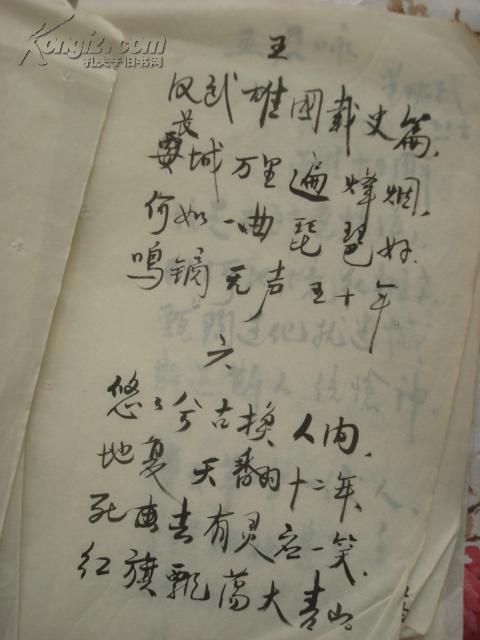 Kongfz.com
孔夫子旧书网
五
汉武雄图载史篇，
长城万里遍烽烟。
何如一曲琵琶好，
鸣镝无声五十年
六
悠〻兮古换人间，
地复天翻十二年、
死 有灵应一笑、
红旗飘荡大青山。